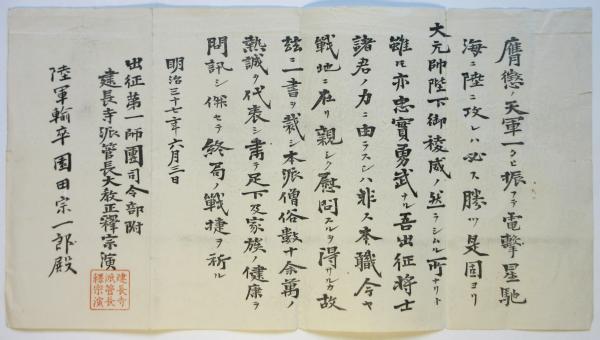 膺懲ノ天軍一タヒ振フテ電撃星馳
海ニ陸ニ攻レハ必ス勝ツ是固ヨリ
大元帥陛下御稜威ノ然ラシムル所ナリト
雖モ亦忠實勇武ナル吾出征将士
諸君ノ力ニ由ラスンハ非ス本職今ヤ
戦地ニ在リ親シク慰問スルヲ得サルカ故
茲ニ一書ヲ裁シ本派僧俗数十余萬ノ
熱誠ヲ代表シ粛テ足下及家族ノ健康ヲ
問訊シ併セテ終局ノ戦捷ヲ祈ル
明治三十七年六月三日
出征第一師團司令部附
建長寺派管長大教正釋宗演
陸軍輸卒園田宗一郎殿
建長寺
派管長
釋宗演